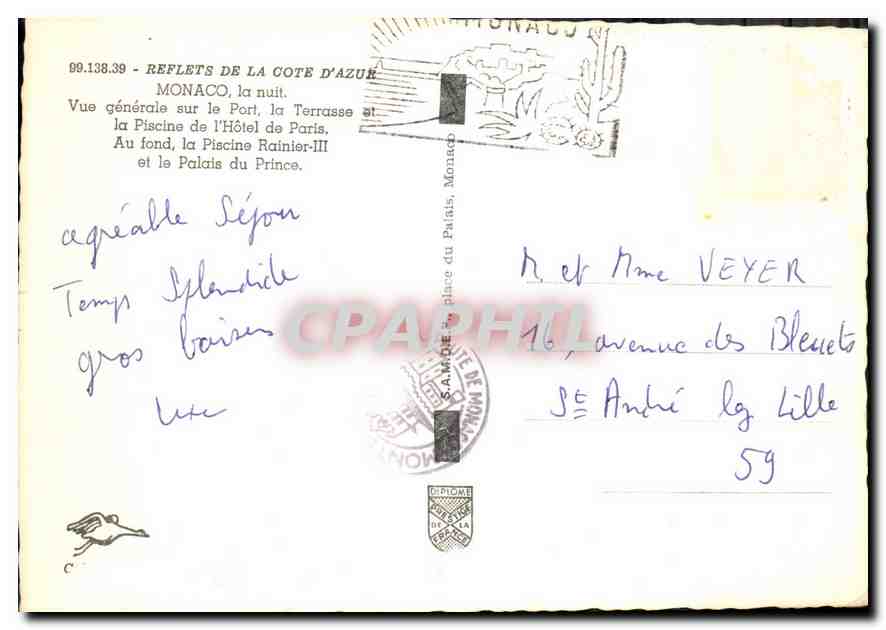 MONACO
99.138.39 - REFLETS DE LA COTE D'AZUR
MONACO, la nuit.
Vue générale sur le Port, la Terrasse et
la Piscine de l'Hôtel de Paris.
Au fond, la Piscine Rainier-III
et le Palais du Prince.
agréable Séjour
Temps Splendide
gros baisers
S.A.M.D.E.P., place du Palais, Monaco
M. et Mme VEYER
16, avenue des Bleuets
St André lez Lille
59
CPAPHIL
DIPLOME
PRESTIGE
DE LA
FRANCE